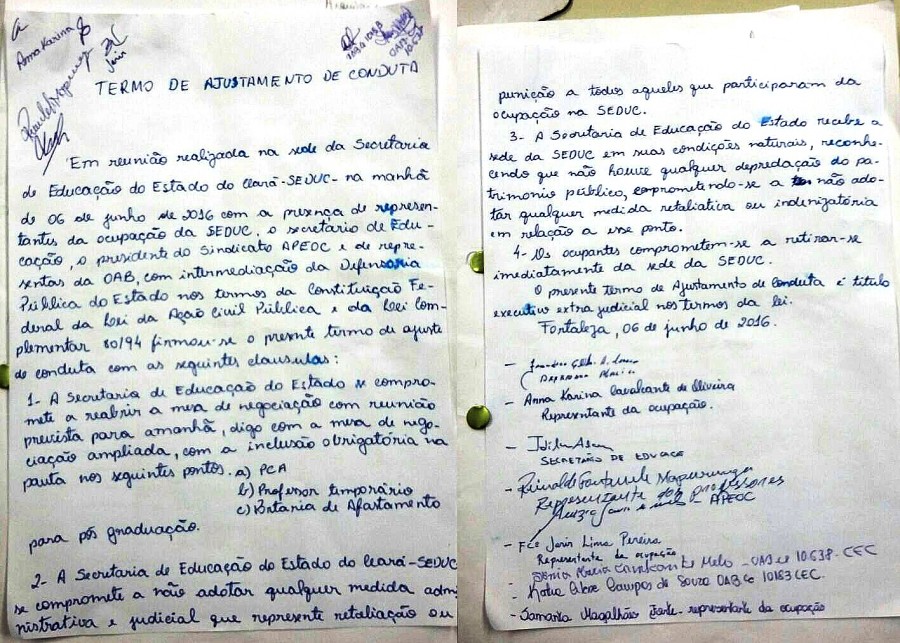 Anna Karina
Jarin
TERMO DE AJUSTAMENTO DE CONDUTA
Em reunião realizada na sede da Secretaria
de Educação do Estado do Ceará-SEDUC- na manhã
de 06 de junho de 2016 com a presença de represen-
tantes da ocupação da SEDUC, o secretário de Edu-
cação, o presidente do Sindicato APEOC e de repre-
sentas da OAB, com intermediação da Defensoria
Pública do Estado nos termos da Constituição Fe-
deral da Lei da Ação Civil Pública e da Lei Com-
plementar 80/94 firmou-se o presente termo de ajuste
de conduta com as seguintes clausulas:
1- A Secretaria de Educação do Estado se compro-
mete a reabrir a mesa de negociação com reunião
prevista para amanhã, digo com a mesa de nego-
ciação ampliada, com a inclusão obrigatória na
pauta nos seguintes pontos. a) PCA
b) Professor temporário
c) Potaria de Afastamento
para pós graduação.
2- A Secretaria de Educação do Estado do Ceará-SEDUC
se compromete a não adotar qualquer medida adm
nistrativa e judicial que represente retaliação ou
punição a todos aqueles que participaram da
ocupação na SEDUC.
3- A Secretaria de Educação do Estado recebe a
sede da SEDUC em suas condições naturais, reconhe-
cendo que não houve qualquer depredação do pa-
trimonio público, comprometendo-se a não ado-
tar qualquer medida retaliativa ou indenizatória
em relação a esse ponto.
4- Os ocupantes comprometem-se a retirar-se
imediatamente da sede da SEDUC.
O presente Termo de Ajustamento de Conduta é título
executivo extra judicial nos termos da lei.
Fortaleza, 06 de junho de 2016.
- Anna Karina Cavalcante de Oliveira
Representante da ocupação.
SECRETÁRIO DE EDUCAÇÃO
Representante dos professores
APEOC
- Fco Jarin Lima Pereira
Representante da ocupação
Melo - OAB CE 10.638 - CEC
- Katia Campos de Souza OAB CE 10183 CEC.
- Samanta Magalhães - representante da ocupação